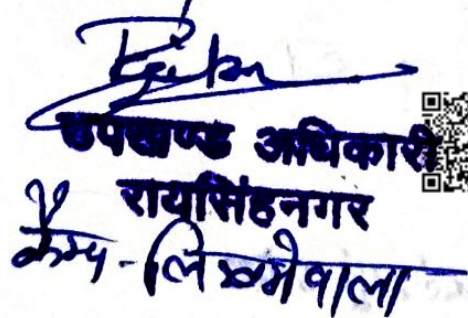 उपखण्ड अधिकारी
रायसिंहनगर
कैम्प - लिखमेवाला